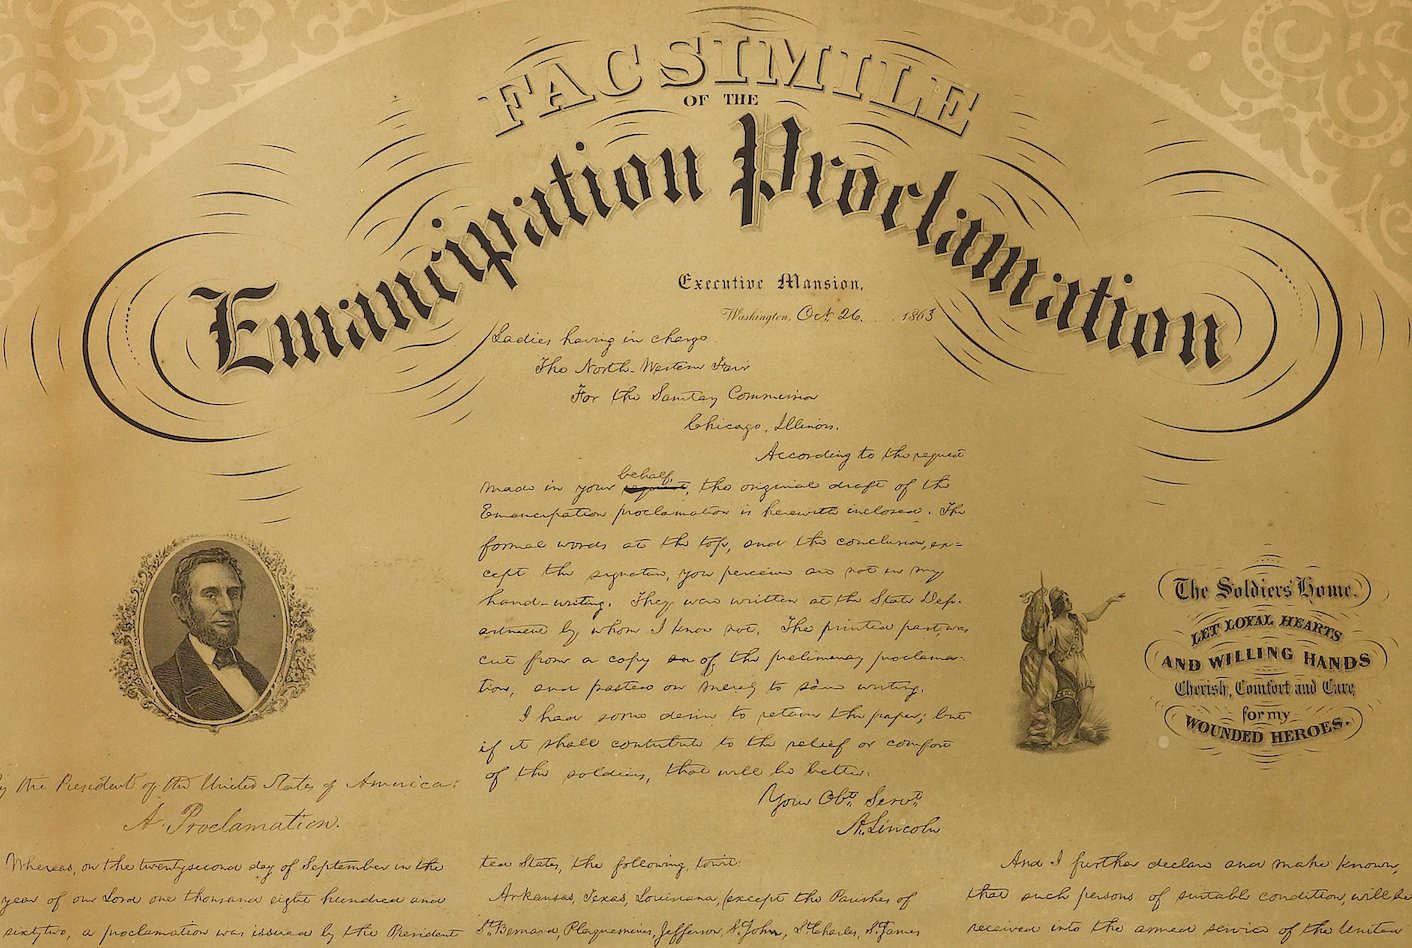 FACSIMILE
OF THE
Emancipation Proclamation
Executive Mansion,
Washington, Oct. 26. 1863
Ladies having in charge
The North-Western Fair
For the Sanitary Commission
Chicago, Illinois.
According to the request
made in your behalf, the original draft of the
Emancipation proclamation is herewith inclosed. The
formal words at the top, and the conclusion, ex-
cept the signature, you perceive are not in my
hand-writing. They were written at the State Dep-
artment by whom I know not. The printed part was
cut from a copy of the preliminary proclama-
tion, and pasted on merely to save writing.
I had some desire to retain the paper; but
if it shall contribute to the relief or comfort
of the soldiers, that will be better.
Your Obt. Servt.
A. Lincoln
The Soldiers' Home.
LET LOYAL HEARTS
AND WILLING HANDS
Cherish, Comfort and Care
for my
WOUNDED HEROES.
the President of the United States of America:
A. Proclamation.
Whereas, on the twentysecond day of September in the
year of our Lord one thousand eight hundred and
sixtytwo, a proclamation was issued by the President
ted States, the following, towit:
Arkansas, Texas, Louisiana, (except the Parishes of
St. Bernard, Plaquemines, Jefferson, St. John, St. Charles, St. James
And I further declare and make known,
that such persons of suitable condition, will be
received into the armed service of the United